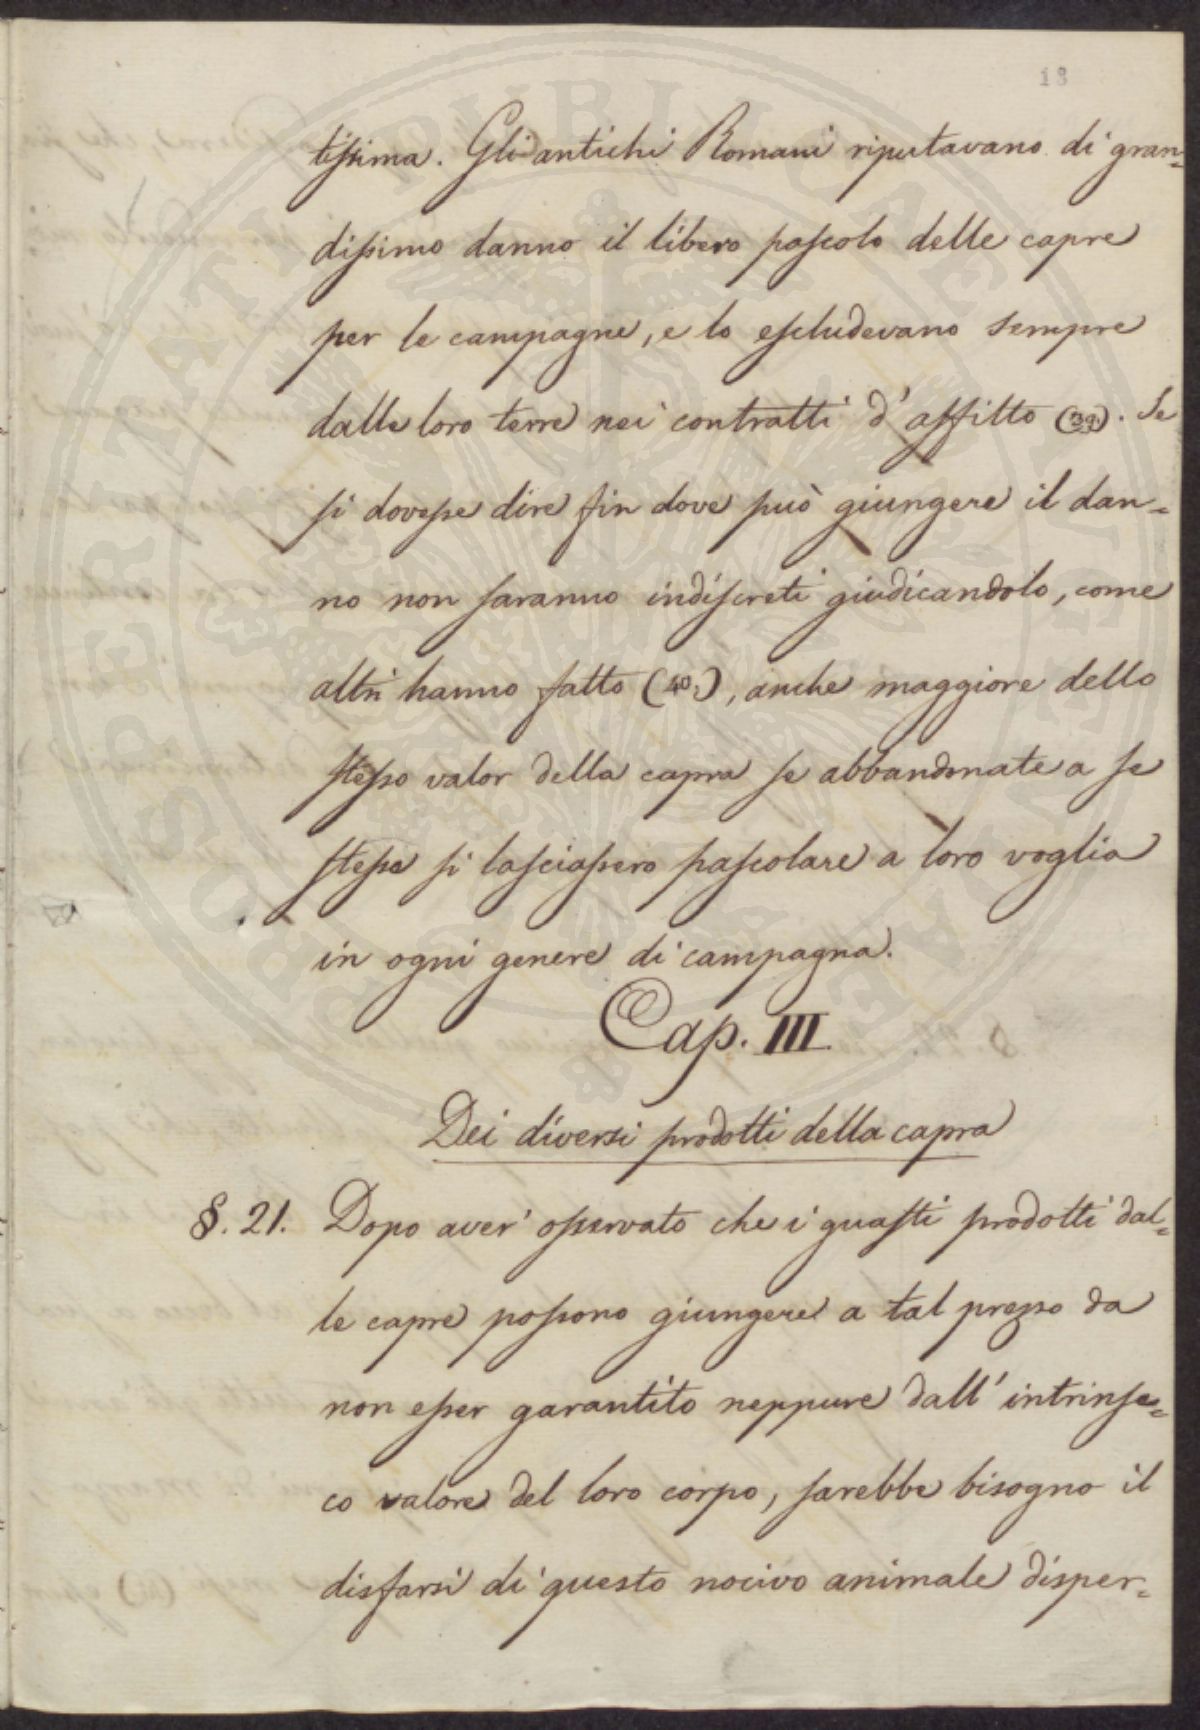 18
tissima. Gli antichi Romani riputavano di gran-
dissimo danno il libero pascolo delle capre
per le campagne, e lo escludevano sempre
dalle loro terre nei contratti d'affitto (39.). Se
si dovesse dire fin dove può giungere il dan-
no non saranno indiscreti giudicandolo, come
altri hanno fatto (40.), anche maggiore dello
stesso valor della capra se abbandonate a se
stesse si lasciassero pascolare a loro voglia
in ogni genere di campagna.
Cap. III
Dei diversi prodotti della capra
§. 21. Dopo aver' osservato che i guasti prodotti dal-
le capre possono giungere a tal prezzo da
non esser garantito neppure dall' intrinse-
co valore del loro corpo, sarebbe bisogno il
disfarsi di questo nocivo animale disper-
PROSPERITATI PUBLICAE AUGENDAE